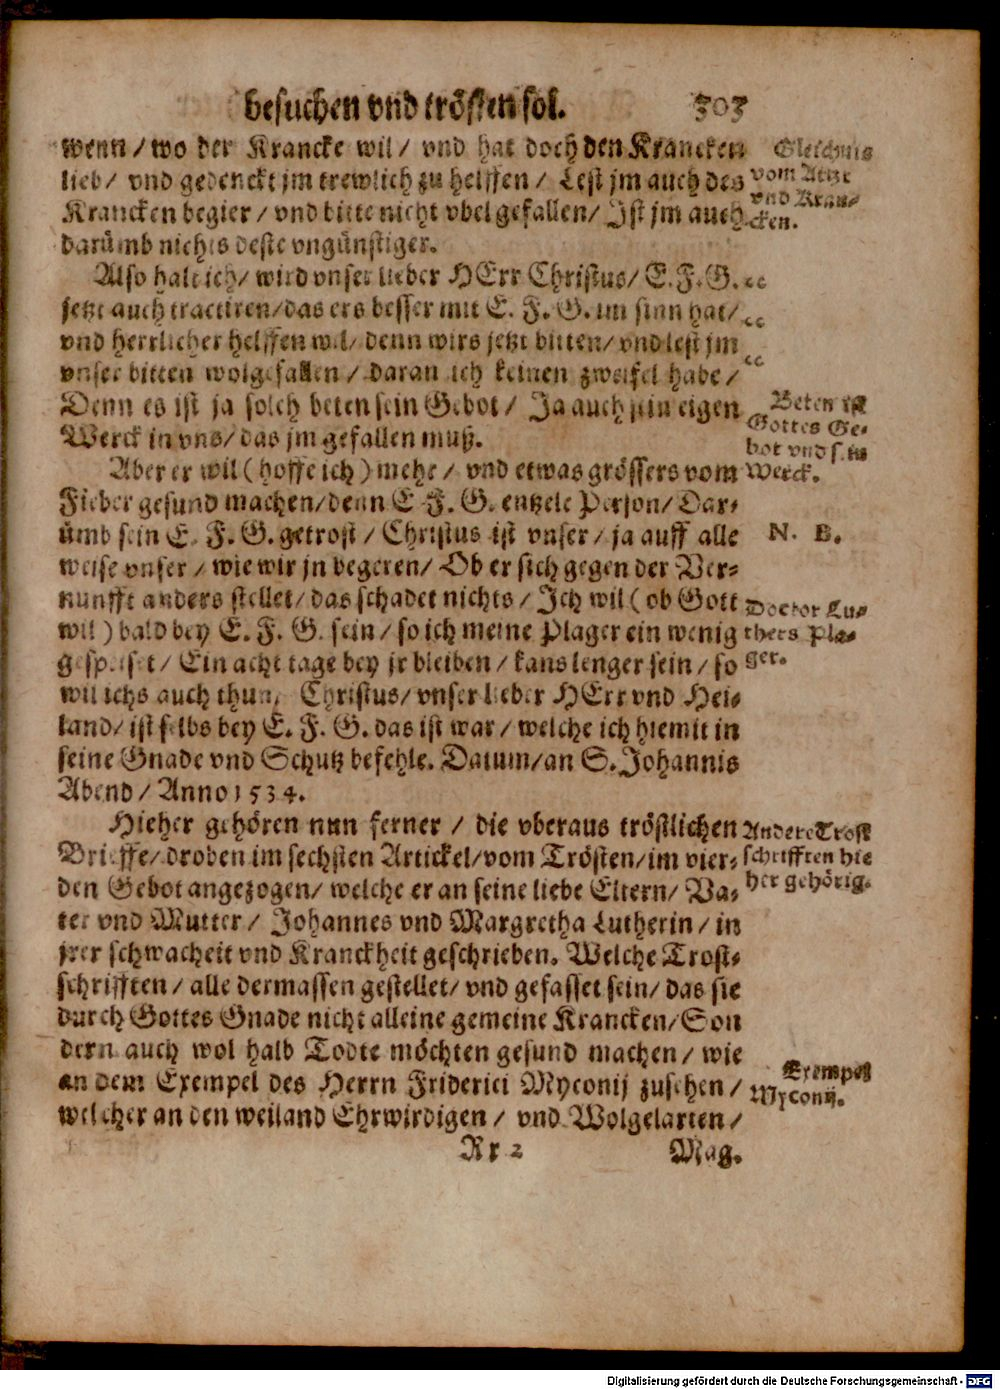 besuchen vnd trösten sol. 303
wenn / wo der Krancke wil / vnd hat doch den Krancken
lieb / vnd gedenckt jm trewlich zu helffen / Lest jm auch des
Krancken begier / vnd bitte nicht vbel gefallen / Ist jm auch
darümb nichts deste vngünstiger.
Gleichnis
vom Artzt
vnd Kran-
cken.
Also halt ich / wird vnser lieber HErr Christus / E. F. G.
jetzt auch tractiren / das ers besser mit E. F. G. im sinn hat /
vnd herrlicher helffen wil / denn wirs jetzt bitten / vnd lest jm
vnser bitten wolgefallen / daran ich keinen zweifel habe /
Denn es ist ja solch beten sein Gebot / Ja auch sein eigen
Werck in vns / das jm gefallen muß.
Beten ist
Gottes Ge-
bot vnd sein
Werck.
Aber er wil ( hoffe ich ) mehr / vnd etwas grössers vom
Fieber gesund machen / denn E. F. G. entzele Person / Dar-
ümb sein E. F. G. getrost / Christus ist vnser / ja auff alle
weise vnser / wie wir jn begeren / Ob er sich gegen der Ver-
nunfft anders stellet / das schadet nichts / Ich wil ( ob Gott
wil ) bald bey E. F. G. sein / so ich meine Plager ein wenig
gespeiset / Ein acht tage bey jr bleiben / kans lenger sein / so
wil ichs auch thun, Christus / vnser lieber HErr vnd Hei-
land / ist selbs bey E. F. G. das ist war / welche ich hiemit in
seine Gnade vnd Schutz befehle. Datum / an S. Johannis
Abend / Anno 1534.
N. B.
Doctor Lu-
thers Pla-
ger.
Hieher gehören nun ferner / die vberaus tröstlichen
Brieffe / droben im sechsten Artickel / vom Trösten / im vier-
den Gebot angezogen / welche er an seine liebe Eltern / Va-
ter vnd Mutter / Johannes vnd Margretha Lutherin / in
jrer schwacheit vnd Kranckheit geschrieben. Welche Trost-
schrifften / alle dermassen gestellet / vnd gefasset sein / das sie
durch Gottes Gnade nicht alleine gemeine Krancken / Son
dern auch wol halb Todte möchten gesund machen / wie
an dem Exempel des Herrn Friderici Myconij zusehen /
welcher an den weiland Ehrwirdigen / vnd Wolgelarten /
Andere Trost
schrifften hie
her gehörig.
Exempel
Myconij.
Rr 2 Mag.
Digitalisierung gefördert durch die Deutsche Forschungsgemeinschaft - DFG